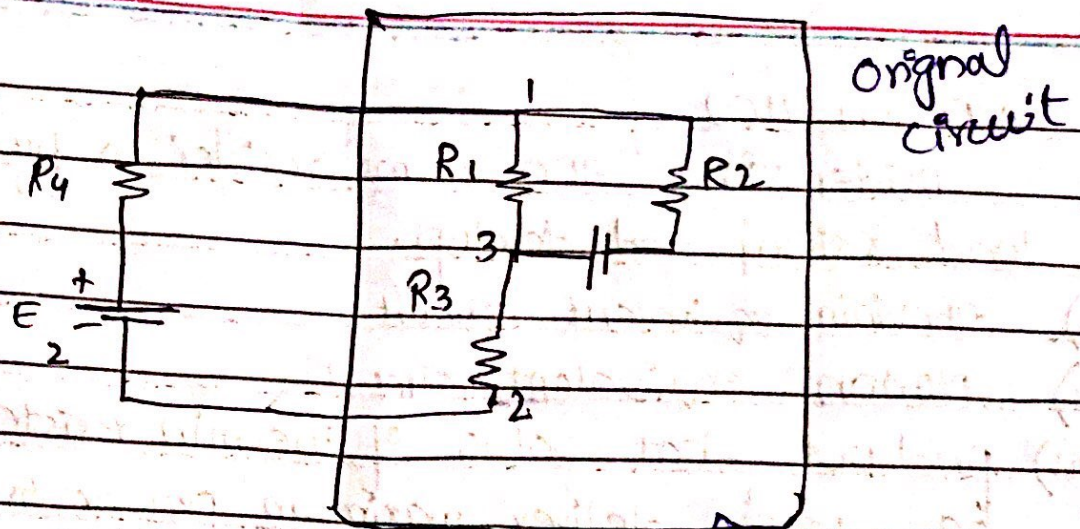 Orignal
circuit
1
R4
R1
R2
3
+
R3
E
-
2
2